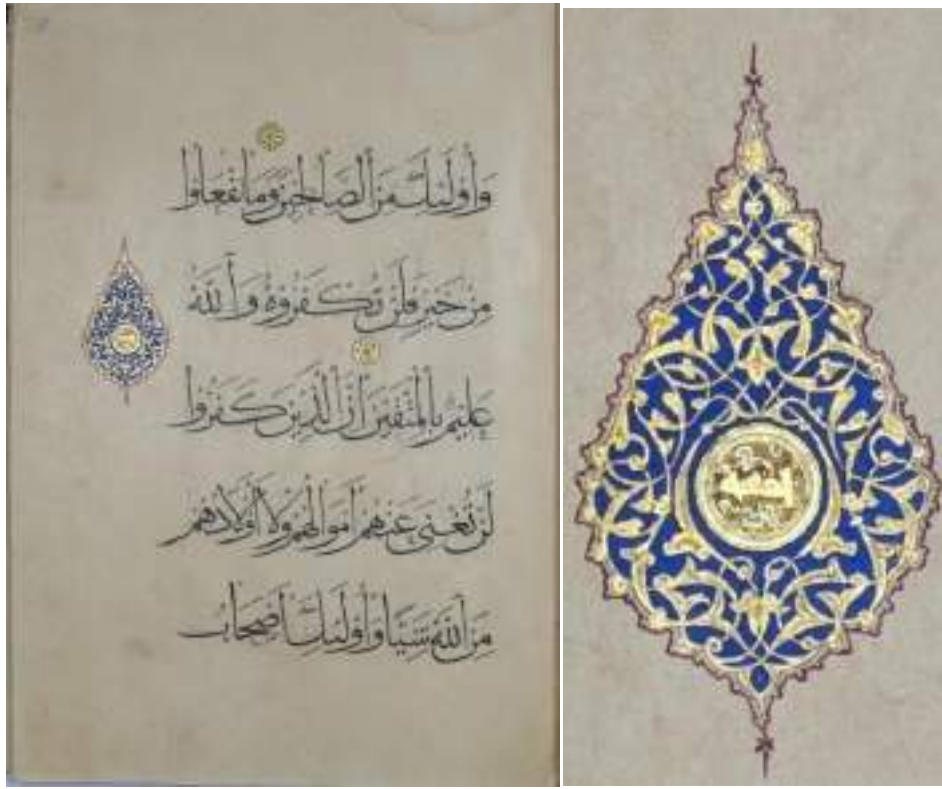 وَأُولَئِكَ مِنَ الصَّالِحِينَ وَمَا تَفْعَلُوا
مِنْ خَيْرٍ فَلَنْ تُكْفَرُوهُ وَاللَّهُ
عَلِيمٌ بِالْمُتَّقِينَ إِنَّ الَّذِينَ كَفَرُوا
لَنْ تُغْنِيَ عَنْهُمْ أَمْوَالُهُمْ وَلَا أَوْلَادُهُمْ
مِنَ اللَّهِ شَيْئًا وَأُولَئِكَ أَصْحَابُ